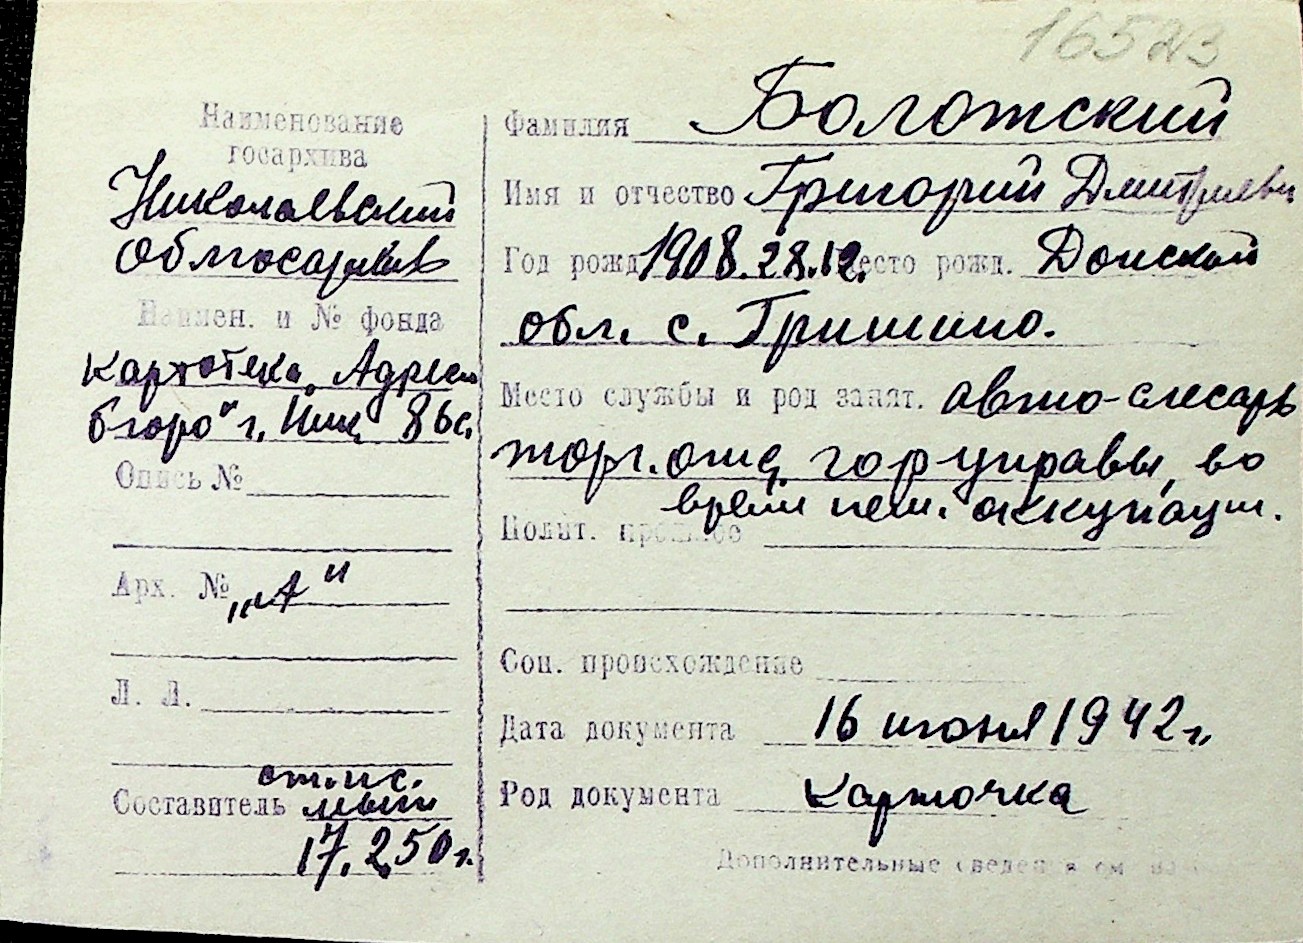 16523
Наименование
госархива
Николаевский
облгосархив
Наимен. и № фонда
картотека „Адресн
бюро" г. Ник. 86с.
Опись №
Арх. № „А"
Л. Л.
ст. н.с.
Составитель
17.2.50 г.
Фамилия Болотский
Имя и отчество Григорий Дмитриевич
Год рожд 1908.28.12. Место рожд. Донской
обл. с. Гришино.
Место службы и род занят. авто-слесарь
торг. отд. горуправы, во
время нем. аккупации.
Полит. прошлое
Соц. происхождение
Дата документа 16 июня 1942 г.
Род документа карточка
Дополнительные сведения см